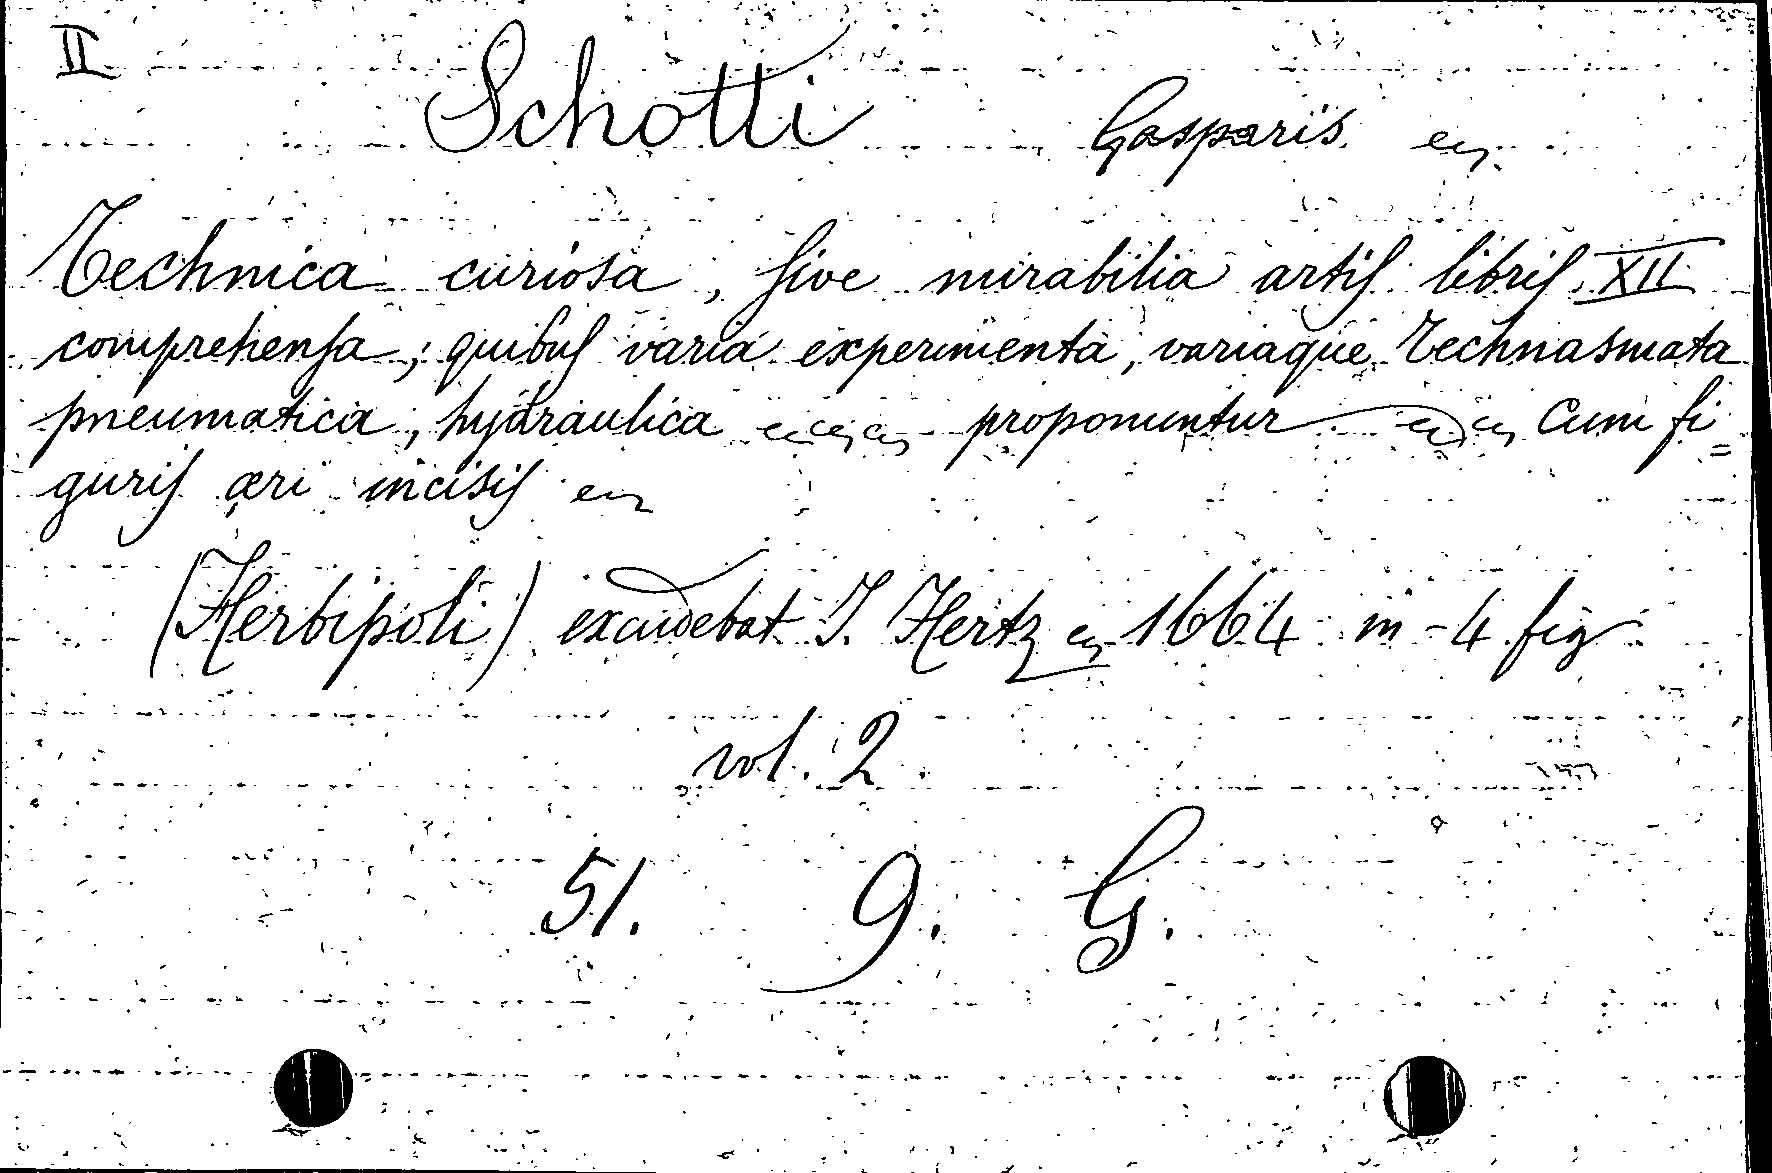 II
Schotti Gasparis
Technica curiosa, sive mirabilia artis libris XII
comprehensa; quibus varia experimenta, variaque technasmata
pneumatica, hydraulica proponuntur Cum fi=
guris æri incisis
(Herbipoli) excudebat J. Hertz 1664 in-4 fig
vol. 2
51. 9. G.